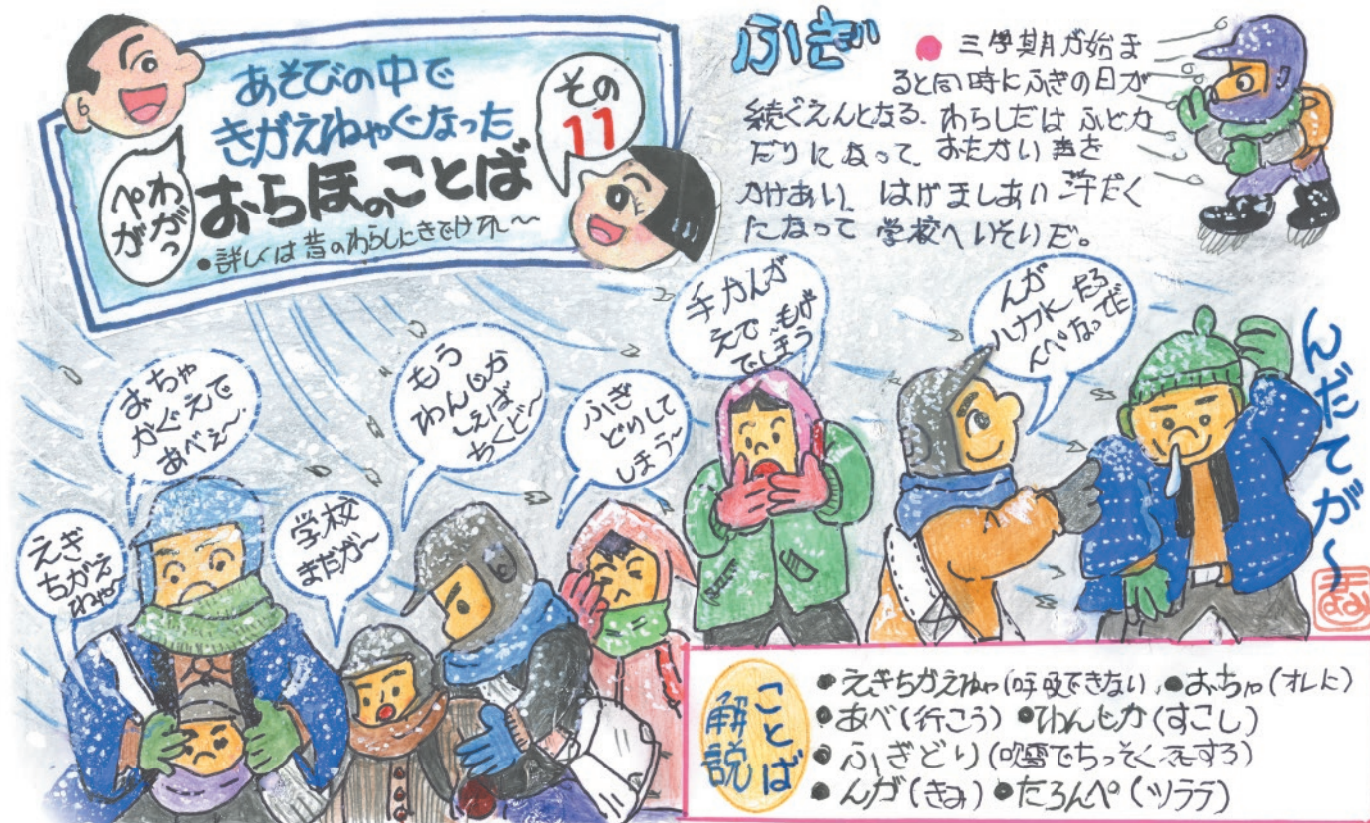 あそびの中で
きがえねゃぐなった
おらほのことば
●詳しくは昔のわらしにきでけれ～
その
11
わがっ
ぺが
ふぎ
● 三學期が始ま
ると同時にふぎの日が
続ぐえんとなる。わらしだは ふとカ
だりになって、おたかい 声を
かけあい、はげましあい 汗だく
になって 学校へいそいだ。
えぎ
ちがえ
ねゃ～
おちゃ
かぐえで
あべぇ～
学校
まだが～
もう
わんじか
しぇば
ちくど～
ふぎ
どりして
しまう～
手かんが
えで～もげ
でしまう
んが
ハナ水～たろ
んぺなってだ
んだてが～
ことば
解説
●えぎちがえねゃ(呼吸できない) ●おちゃ(オレに)
●あべ(行こう) ●わんじか(すこし)
●ふぎどり(吹雪でちっそく死する)
●んが(きみ) ●たろんペ(ツララ)